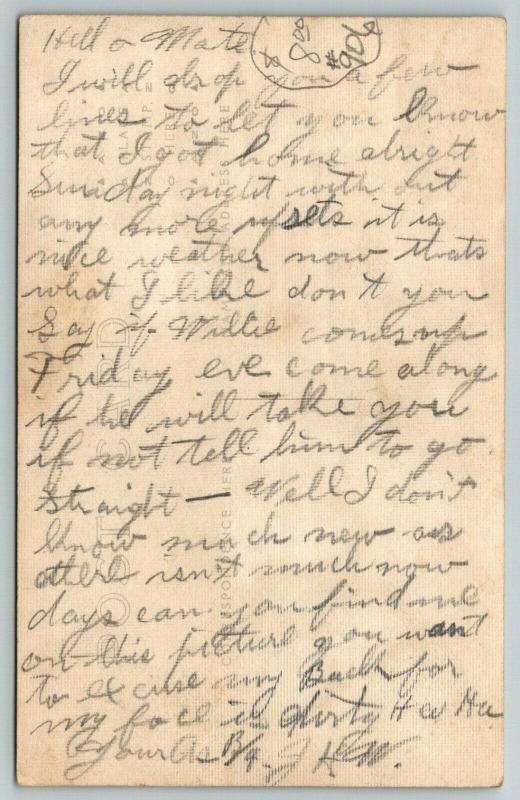 Hello Mate
8 00
#906
I will drop you a few
lines to let you know
that I got home alright
Sunday night with out
any more upsets it is
nice weather now thats
what I like don't you
Say if Willie comes up
Friday eve come along
if he will take you
if not tell him to go
straight — Well I don't
know much new as
there isn't much now
days can you find me
on this picture you want
to excuse my Back for
my face is dirty Ha Ha
Your As
J H W.
POST CARD
CORRESPONDENCE HERE